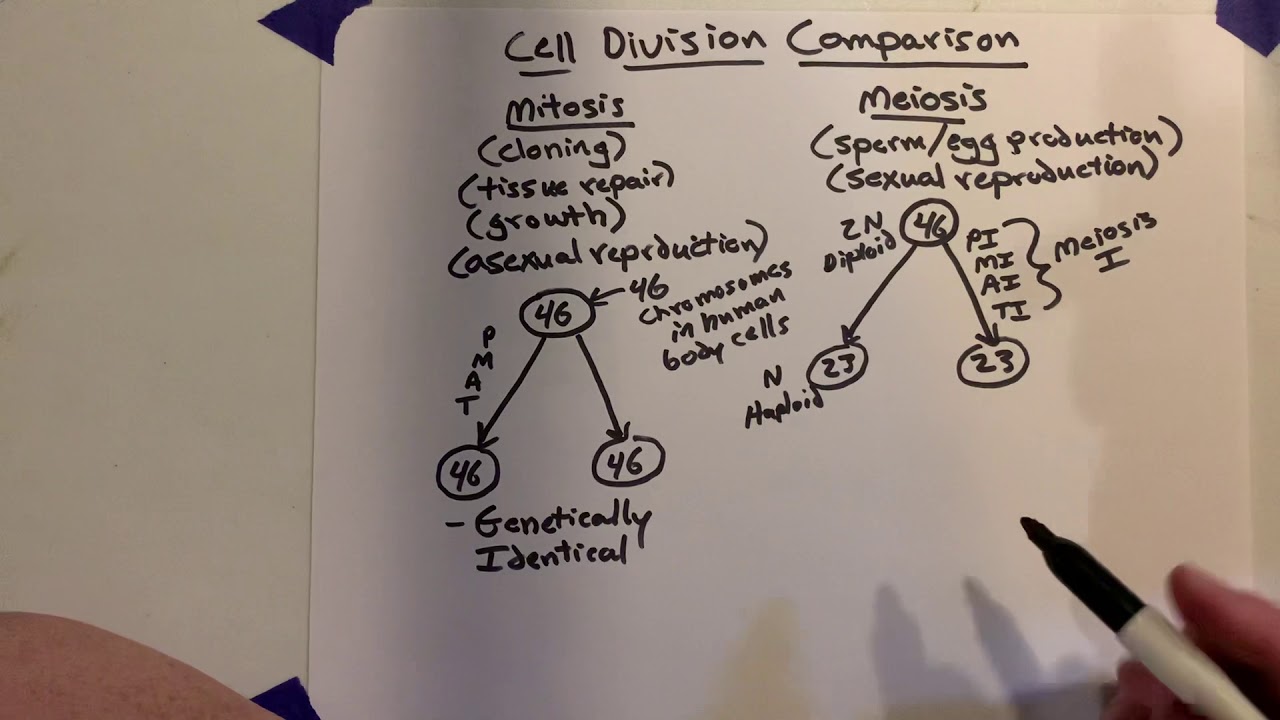 Cell Division Comparison
Mitosis
(cloning)
(tissue repair)
(growth)
(asexual reproduction)
46
46
chromosomes
in human
body cells
P
M
A
T
46
46
- Genetically
Identical
Meiosis
(sperm/egg production)
(sexual reproduction)
2N
Diploid
46
PI
MI
AI
TI
Meiosis
I
23
23
N
Haploid